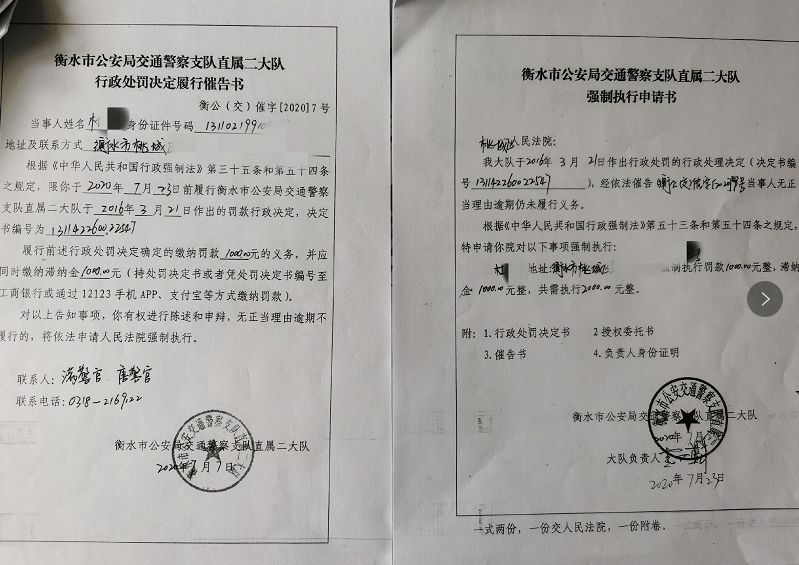 衡水市公安局交通警察支队直属二大队
行政处罚决定履行催告书
衡公(交)催字[2020]7号
当事人姓名 身份证件号码 131102199
地址及联系方式 衡水市桃城
根据《中华人民共和国行政强制法》第三十五条和第五十四条
之规定,限你于2020年7月23日前履行衡水市公安局交通警察
支队直属二大队于2016年3月21日作出的罚款行政决定,决定
书编号为1311422600.22547
履行前述行政处罚决定确定的缴纳罚款1000.00元的义务,并应
同时缴纳滞纳金1000.00元(持处罚决定书或者凭处罚决定书编号至
工商银行或通过12123手机APP、支付宝等方式缴纳罚款)。
对以上告知事项,你有权进行陈述和申辩,无正当理由逾期不
履行的,将依法申请人民法院强制执行。
联系人:满警官 唐警官
联系电话:0318-2169122
衡水市公安局交通警察支队直属二大队
2020年7月7日
衡水市公安局交通警察支队直属二大队
强制执行申请书
桃城人民法院:
我大队于2016年3月21日作出行政处罚的行政处理决定(决定书编
号131142260022547),经依法催告 当事人无正
当理由逾期仍未履行义务。
根据《中华人民共和国行政强制法》第五十三条和第五十四条之规定,
特申请你院对以下事项强制执行:
地址:衡水市桃城 号强制执行罚款1000.00元整,滞纳
金1000.00元整,共需执行2000.00元整。
附:1.行政处罚决定书 2授权委托书
3.催告书 4.负责人身份证明
衡水市公安局交通警察支队直属二大队
2020年7月
大队负责人
2020年7月23日
一式两份,一份交人民法院,一份附卷。